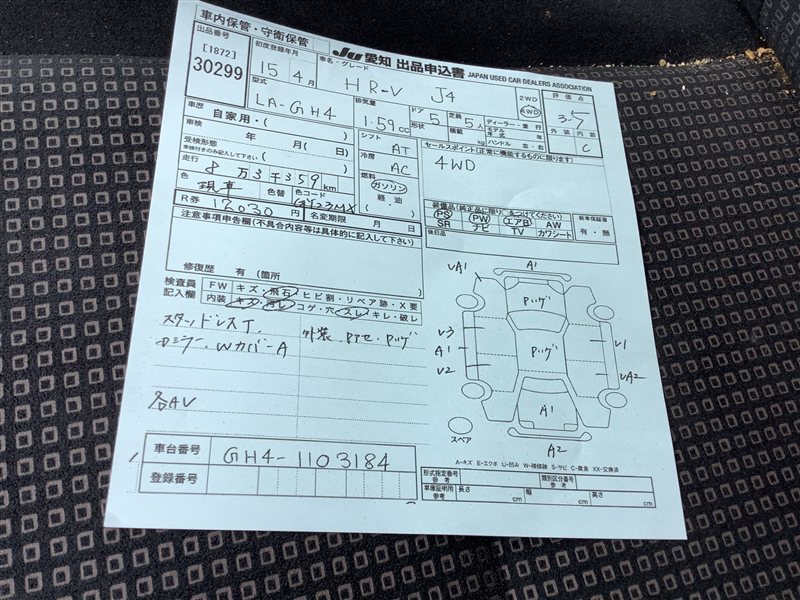 車内保管・守衛保管
JU 愛知 出品申込書 JAPAN USED CAR DEALERS ASSOCIATION
出品番号
[1872]
30299
初度登録年月
15 年 4 月
車名・グレード
HR-V J4
2WD
4WD
評価点
3.5
外装 内装
C
型式
LA-GH4
排気量
1.59 cc
ドア 5
形状
定員 5人
積載 kg
ディーラー・並行
モデル 年
ハンドル 左・右
車歴
自家用・( )
シフト
AT
セールスポイント(正常に機能するものに限ります)
4WD
車検
年 月( 日)
受検形態
車検付きのみ記入して下さい
( )
冷房
AC
走行
8 万 3 千 359 km
燃料
ガソリン
軽油
色
現車
色替
色コード
R券
12030 円
名変期限 月 日
装備品(純正品に限り、○をつけてください)
PS PW エアB AW
SR ナビ TV カワシート
新車保証書
有・無
後日品
注意事項申告欄(不具合内容等は具体的に記入して下さい)
修復歴 有 (箇所
検査員
記入欄
FW キズ・飛石・ヒビ割・リペア跡・X要
内装 キズ・汚レ・コゲ・穴・スレ・キレ・破レ
スタッドレスT.
外装
Wカバー A
各AV
VA1
A1
V3
A1
V2
V1
VA2
A1
A2
スペア
A-キズ E-エクボ U-凹み W-補修跡 S-サビ C-腐食 XX-交換済
車台番号
GH4-1103184
登録番号
形式指定番号
参考
類別区分番号
参考
車庫証明用
参考
長さ cm
幅 cm
高さ cm